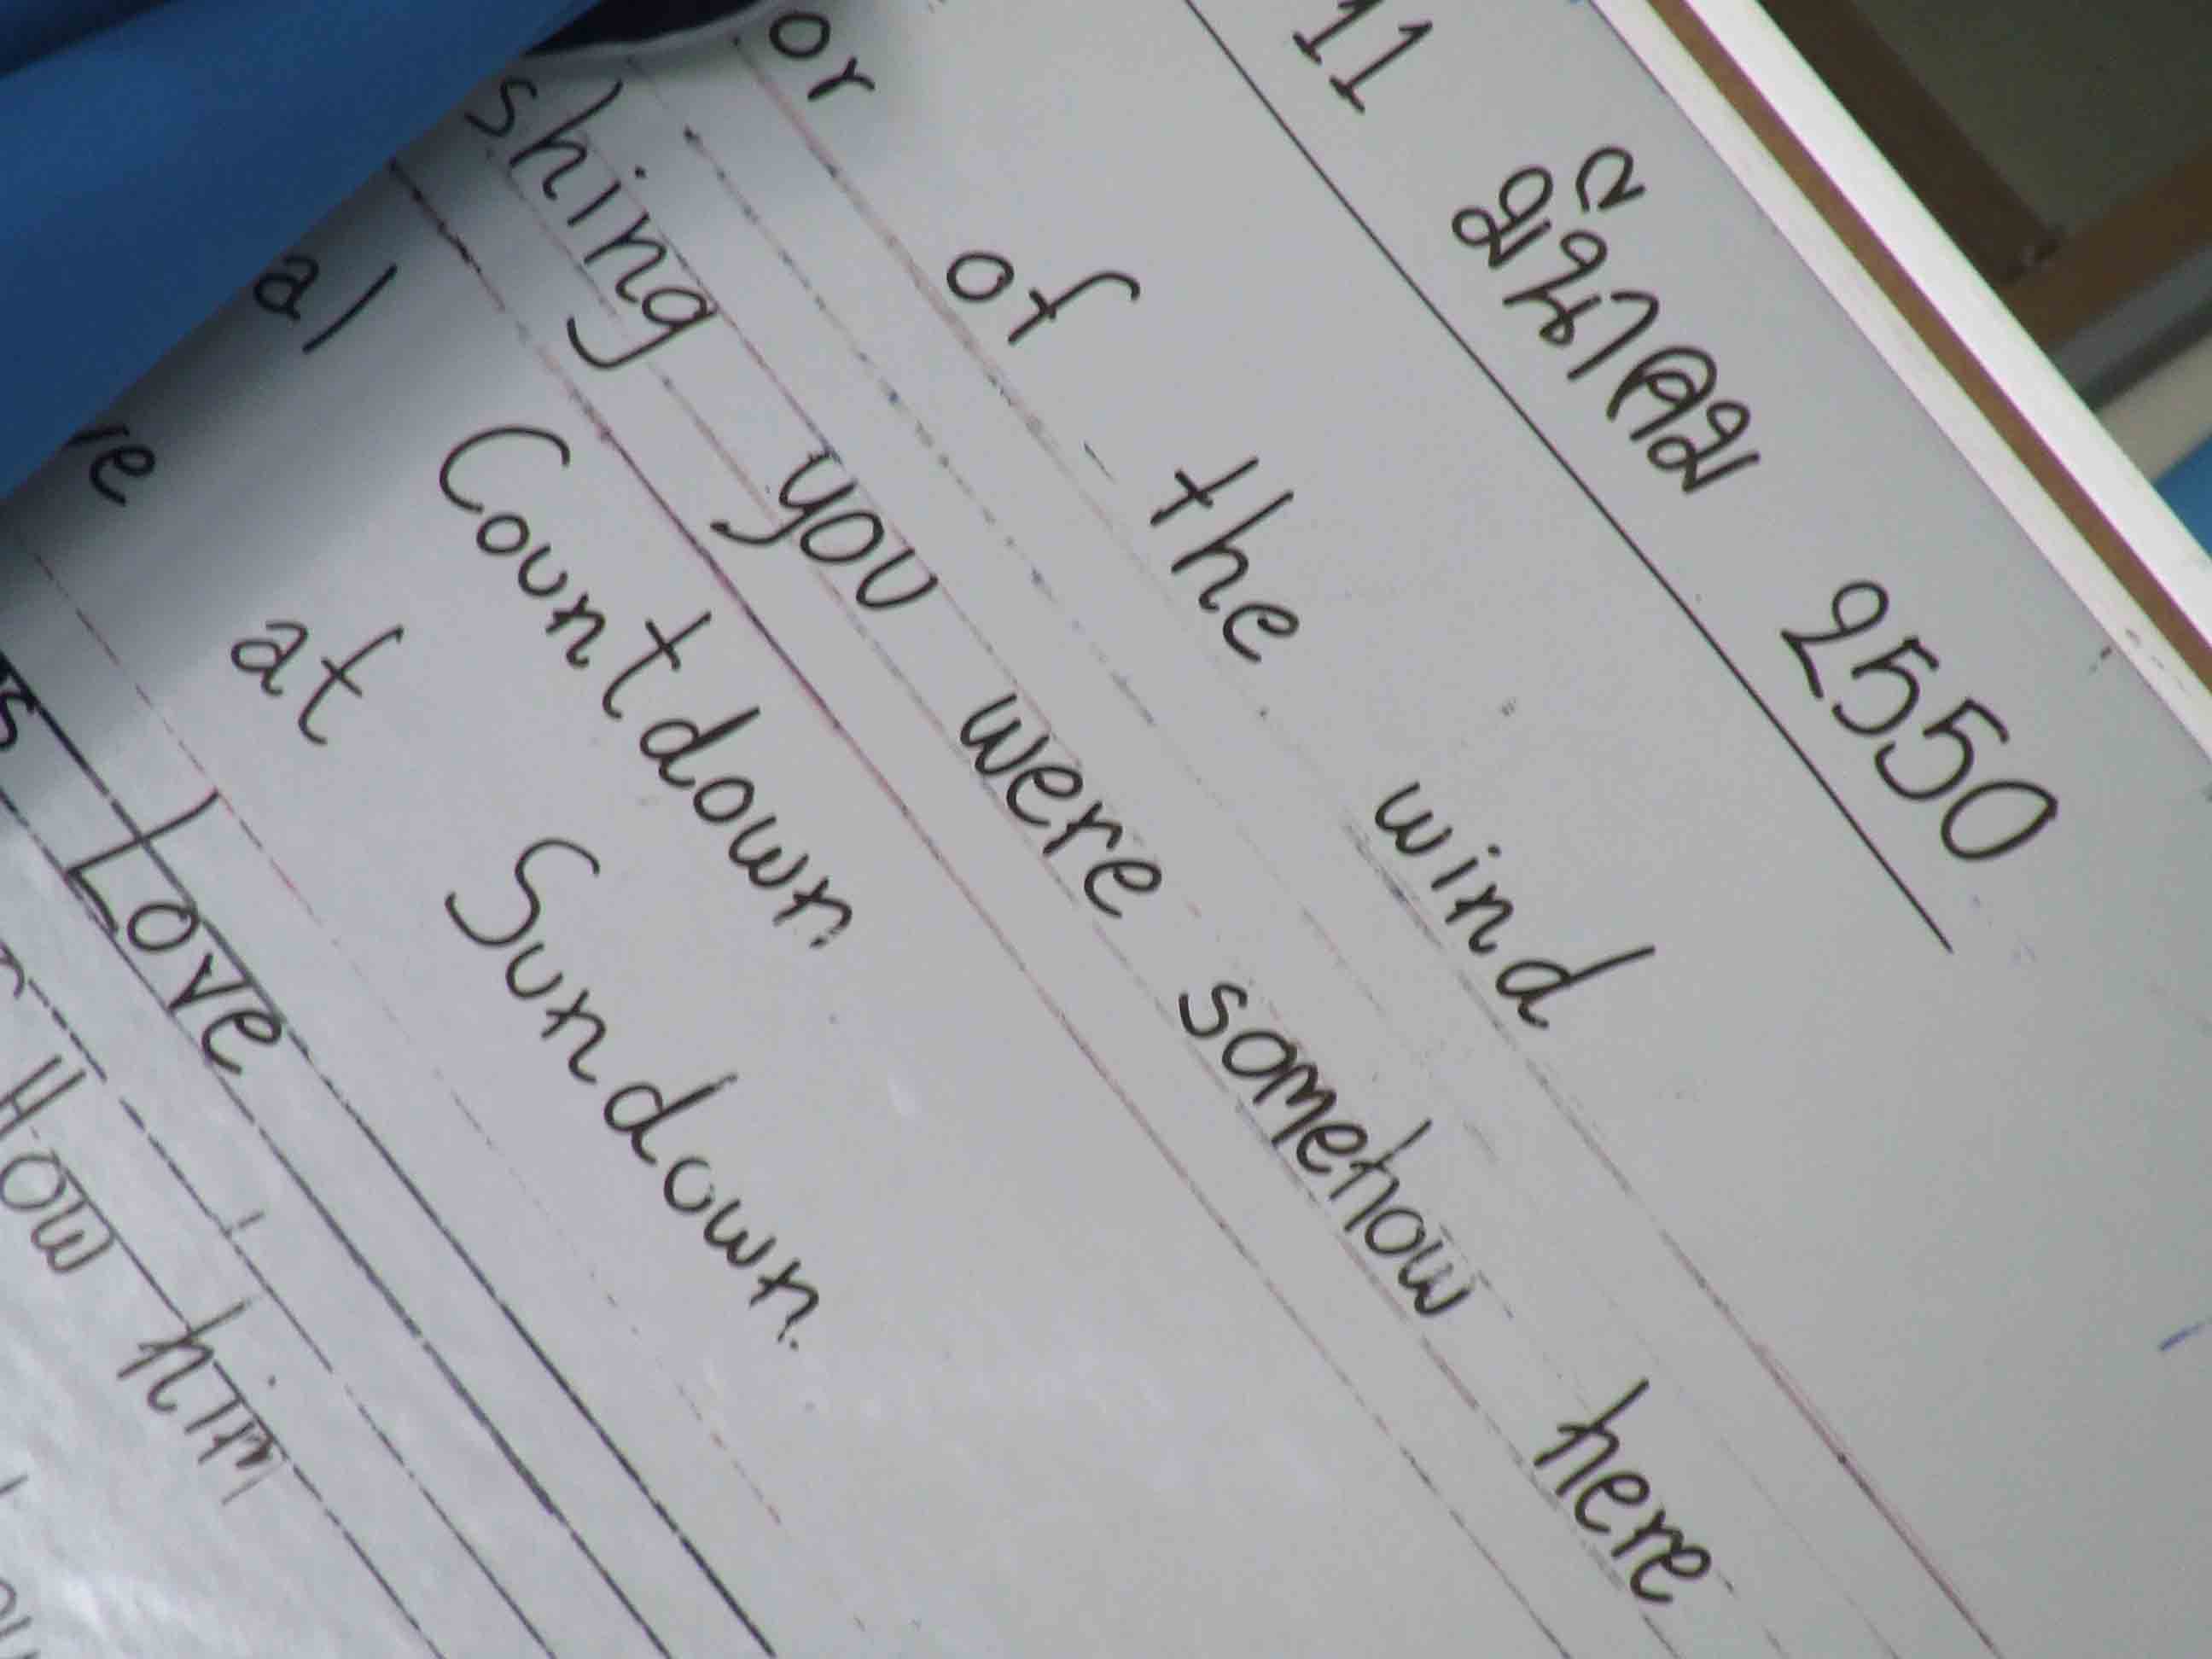 11 มีนาคม 2550
or of the wind
shing you were somehow here
al Countdown
ve at Sundown.
s Love
How him